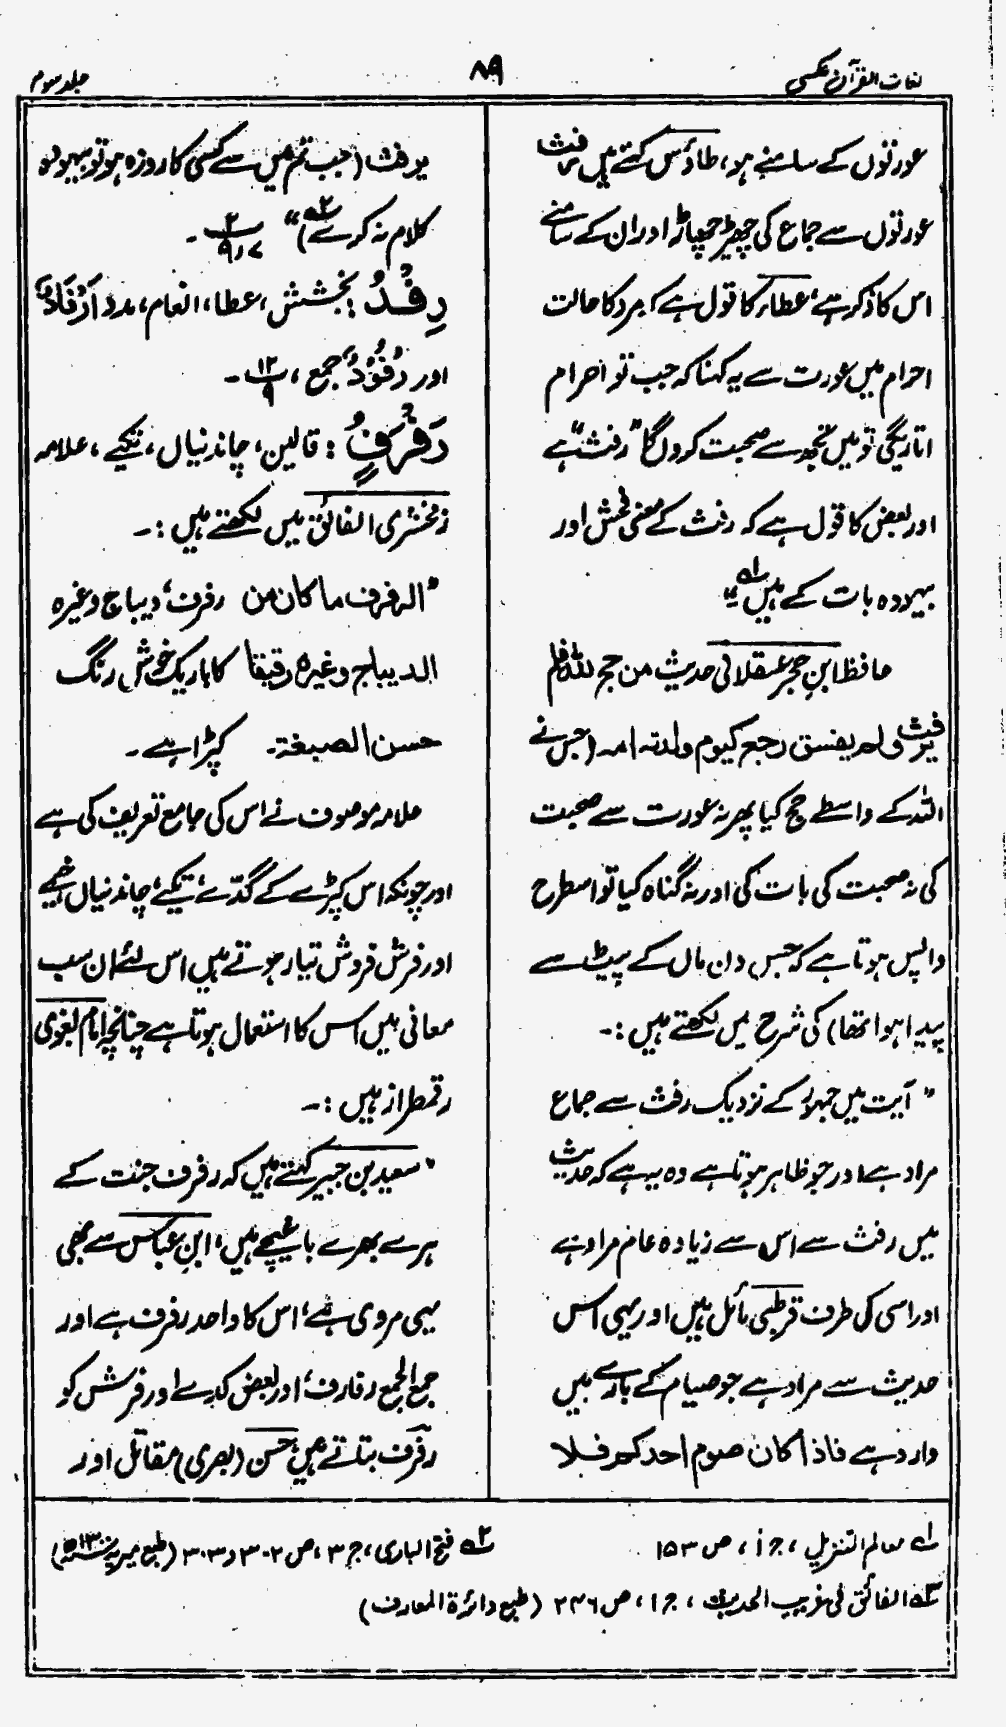 لغات القرآن عکسی
۸۹
جلد سوم
عورتوں کے سامنے ہو، طاؤس کہتے ہیں رفث
عورتوں سے جماع کی چھیڑ چھاڑ اور ان کے سامنے
اس کا ذکر ہے، عطاء کا قول ہے کہ مرد کا حالت
احرام میں عورت سے یہ کہنا کہ جب تو احرام
اتاریگی تو میں تجھ سے صحبت کروں گا "رفث" ہے
اور بعض کا قول ہے کہ رفث کے معنی فحش اور
بیہودہ بات کے ہیں" ۱ه
حافظ ابن حجر عسقلانی حدیث من حج للہ فلم
یرفث ولم یفسق رجع کیوم ولدتہ امہ (جس نے
اللہ کے واسطے حج کیا پھر نہ عورت سے صحبت
کی نہ صحبت کی بات کی اور نہ گناہ کیا تو اسطرح
واپس ہوتا ہے کہ جس دن ماں کے پیٹ سے
پیدا ہوا تھا) کی شرح میں لکھتے ہیں :۔
" آیت میں جمہور کے نزدیک رفث سے جماع
مراد ہے اور جو ظاہر ہوتا ہے وہ یہ ہے کہ حدیث
میں رفث سے اس سے زیادہ عام مراد ہے
اور اسی کی طرف قرطبی مائل ہیں اور یہی اس
حدیث سے مراد ہے جو صیام کے بارے میں
وارد ہے فاذا کان صوم احدکم فلا
یرفث (جب تم میں سے کسی کا روزہ ہو تو بیہودہ
کلام نہ کرے)" ۲ه ۲/۷، ۹۔
رِفْدٌ : بخشش، عطا، انعام، مدد اَرْفَادٌ
اور رُفُوْدٌ جمع، ۱۲/۹۔
رَفْرَفٍ : قالین، چاندنیاں، تکیے، علامہ
زمخشری الفائق میں لکھتے ہیں :۔
"الرفرف ما کان من رفرف، دیباج وغیرہ
الدیباج وغیرہ رقیقا کا باریک خوش رنگ
حسن الصبغۃ۔ کپڑا ہے۔
علامہ موصوف نے اس کی جامع تعریف کی ہے
اور چونکہ اس کپڑے کے گدّے، تکیے، چاندنیاں، خیمے
اور فرش فروش تیار ہوتے ہیں اس لئے ان سب
معانی میں اس کا استعمال ہوتا ہے چنانچہ امام بغوی
رقمطراز ہیں :۔
"سعید بن جبیر کہتے ہیں کہ رفرف جنت کے
ہرے بھرے باغیچے ہیں، ابن عباس سے بھی
یہی مروی ہے، اس کا واحد رفرف ہے اور
جمع الجمع رفارف، اور بعض گدے اور فرش کو
رفرف بتاتے ہیں، حسن (بصری) مقاتل اور
۱ه معالم التنزیل، ج ۱، ص ۱۵۳
۲ه فتح الباری، ج ۳، ص ۳۰۲ و ۳۰۳ (طبع میریہ ۱۳۰۰ھ)
۳ه الفائق فی غریب الحدیث، ج ۱، ص ۲۴۶ (طبع دائرۃ المعارف)